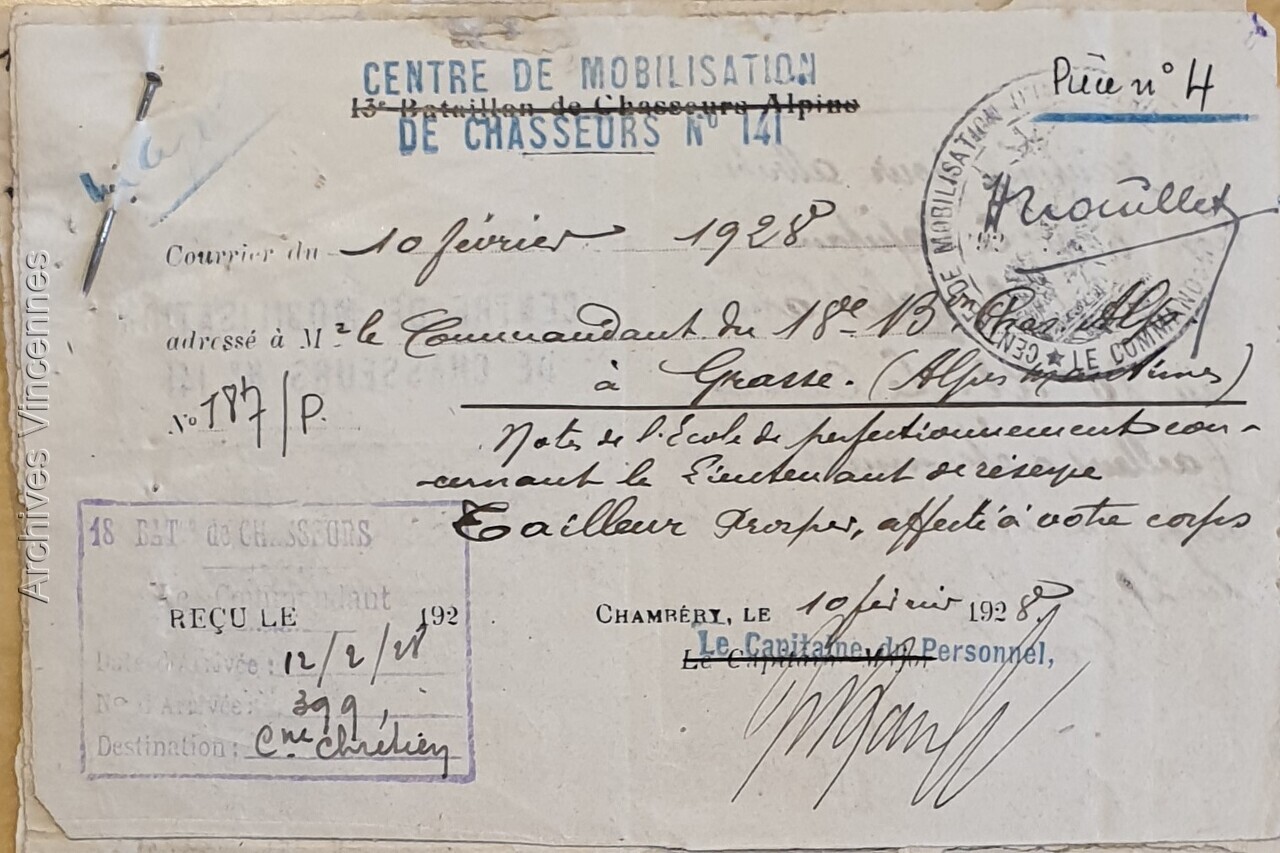 Pièce n° 4
CENTRE DE MOBILISATION
13e Bataillon de Chasseurs Alpins
DE CHASSEURS No 141
Courrier du 10 février 1928
CENTRE DE MOBILISATION
★ LE COMMANDANT
adressé à Mr le Commandant du 18e Bon Chas. Alp.
à Grasse. (Alpes Maritimes)
No 187/P.
Notes de l'École de perfectionnement con-
cernant le Lieutenant de réserve
Tailleur Prosper, affecté à votre corps
18 BATon de CHASSEURS
Le Commandant
REÇU LE 192
Date d'Arrivée : 12/2/28
No d'Arrivée : 399
Destination : Cne Chrétien
CHAMBÉRY, LE 10 février 1928.
Le Capitaine du Personnel,
Le Capitaine Major
Archives Vincennes